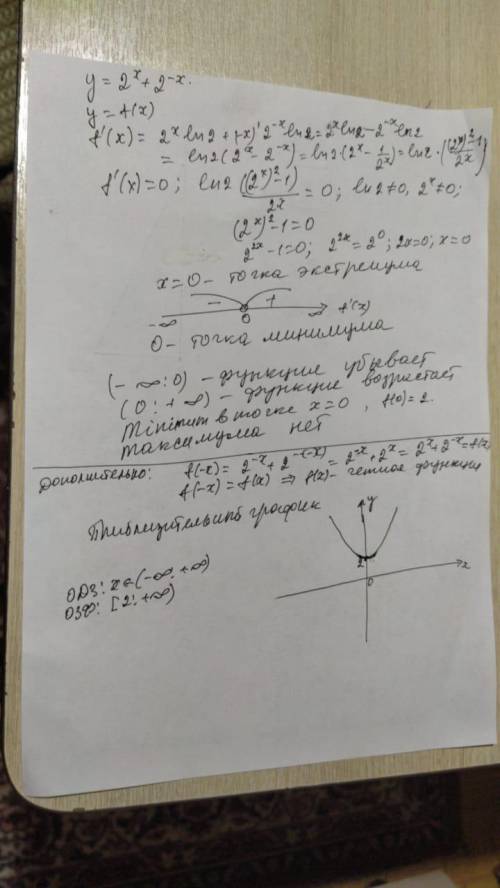 y = 2^x + 2^-x.
y = f(x)
f'(x) = 2^x ln2 + (-x)' 2^-x ln2 = 2^x ln2 - 2^-x ln2
= ln2 (2^x - 2^-x) = ln2 · (2^x - 1/2^x) = ln2 · ((2^x)^2 - 1)/2^x
f'(x) = 0; ln2 ((2^x)^2 - 1)/2^x = 0; ln2 ≠ 0, 2^x ≠ 0;
(2^x)^2 - 1 = 0
2^2x - 1 = 0; 2^2x = 2^0; 2x = 0; x = 0
x = 0 - точка экстремума
- +
-∞ 0 ∞ f'(x)
0 - точка минимума
(-∞; 0) - функция убывает
(0; +∞) - функция возрастает
Minimum в точке x = 0, f(0) = 2.
максимума нет
Дополнительно: f(-x) = 2^-x + 2^-(-x) = 2^-x + 2^x = 2^x + 2^-x = f(x)
f(-x) = f(x) ⇒ f(x) - четная функция
Приблизительный график
y
2
0
x
ОДЗ: x ∈ (-∞; +∞)
ОЗФ: [2; +∞)